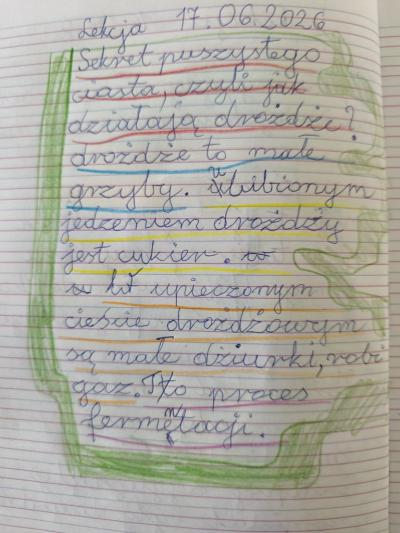 Lekcja 17.06.2026
Sekret puszystego
ciasta, czyli jak
działają drożdże?
drożdże to małe
grzyby. Ulubionym
jedzeniem drożdży
jest cukier.
W upieczonym
cieście drożdżowym
są małe dziurki, robi
gaz. To proces
fermentacji.